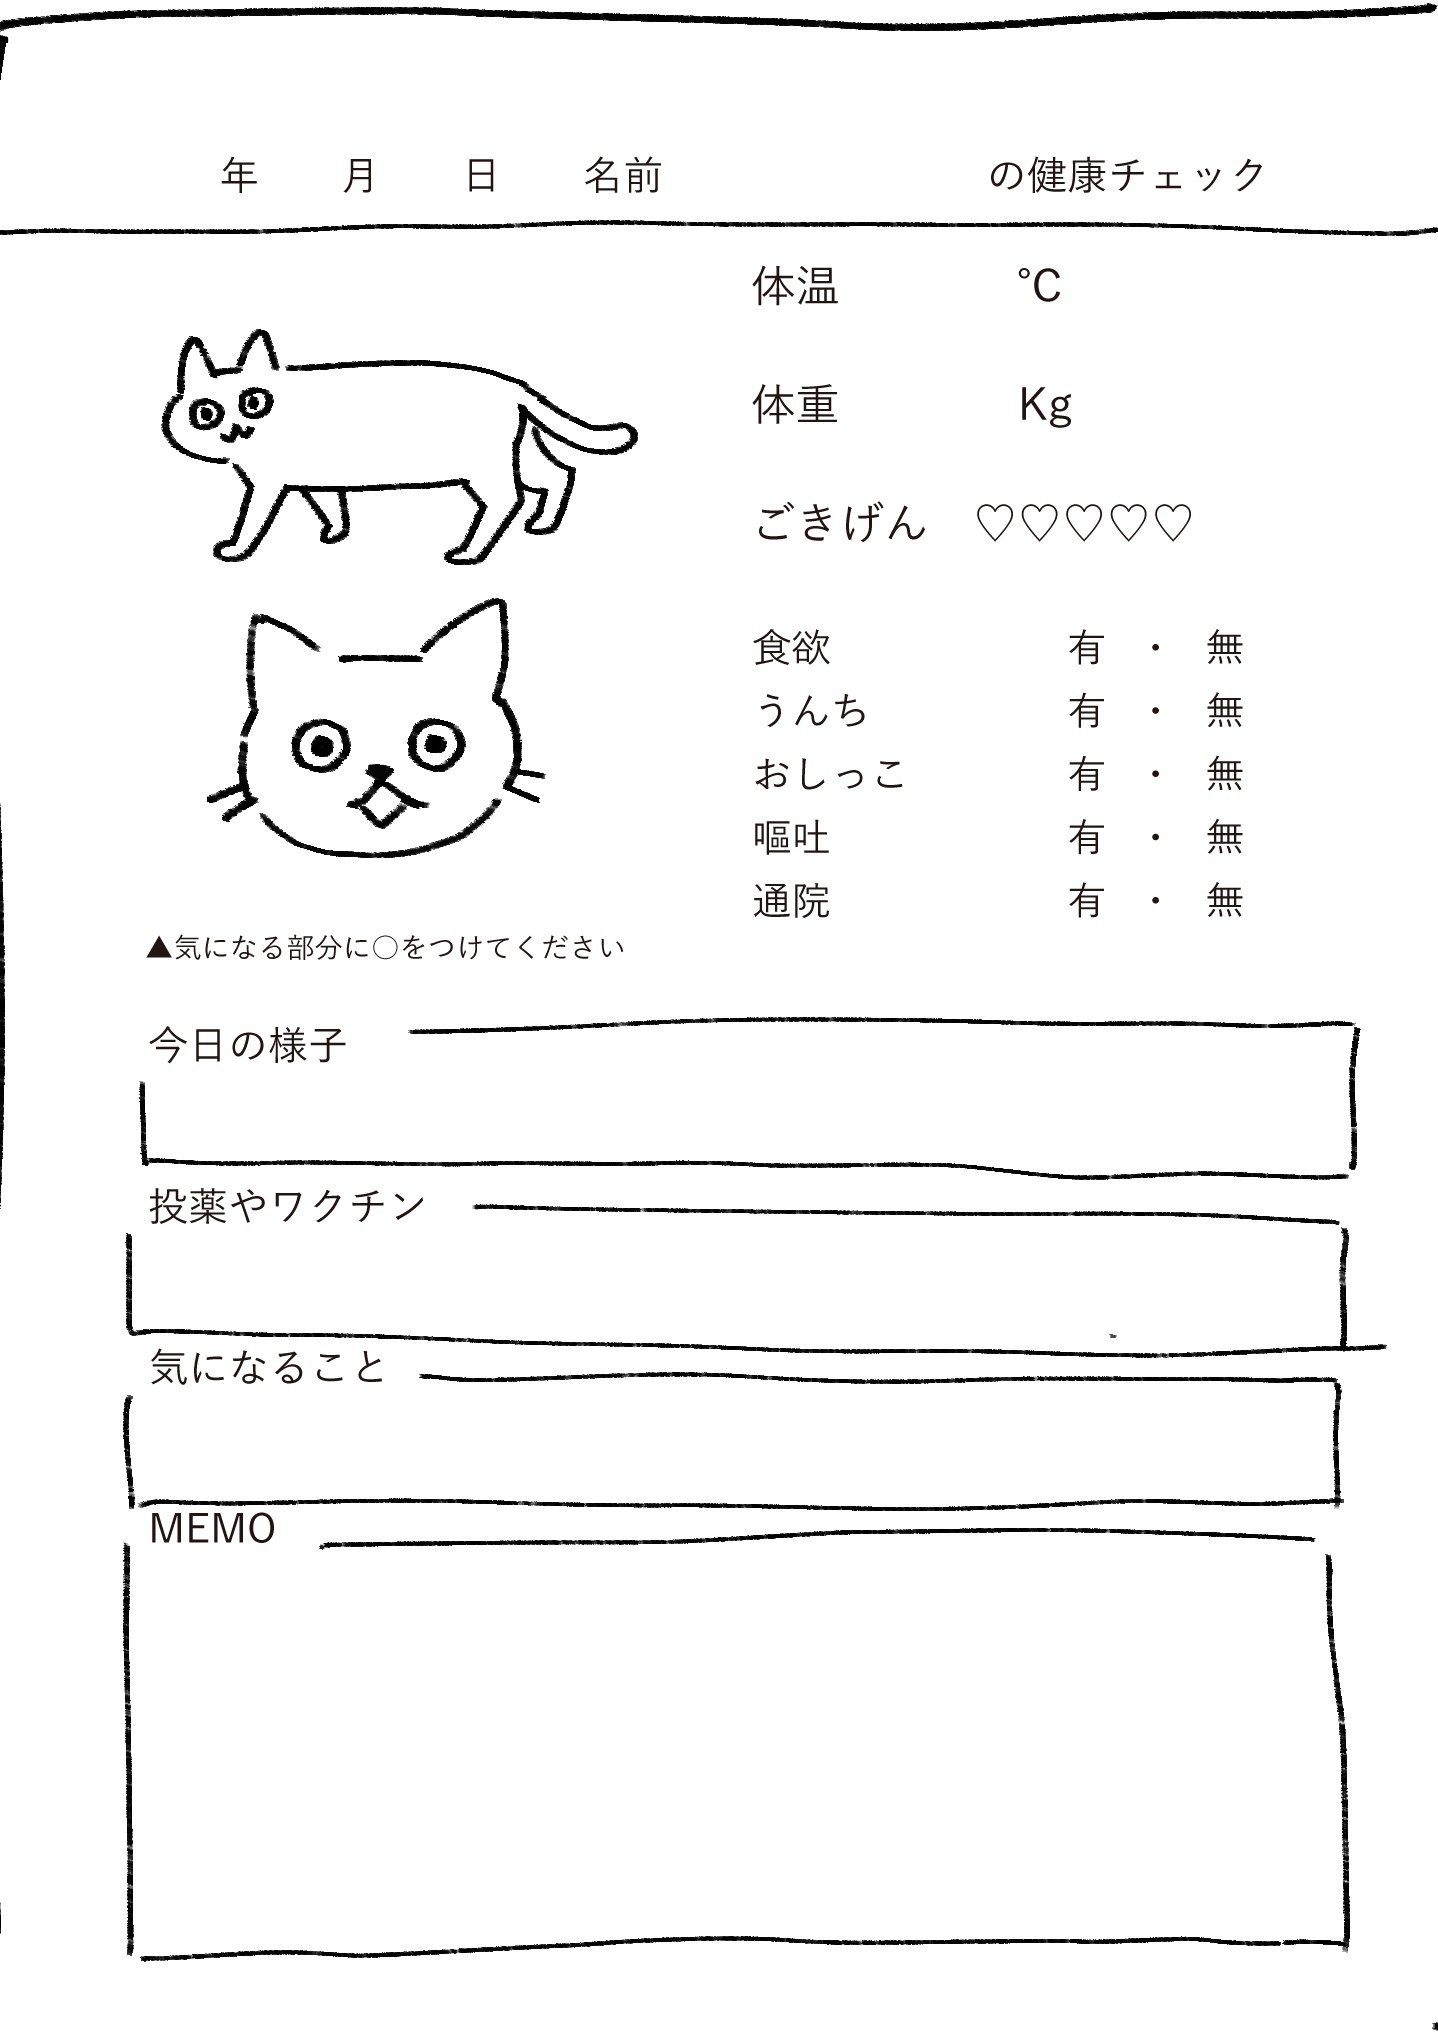 年 月 日 名前 の健康チェック
体温 ℃
体重 Kg
ごきげん ♡♡♡♡♡
食欲 有 ・ 無
うんち 有 ・ 無
おしっこ 有 ・ 無
嘔吐 有 ・ 無
通院 有 ・ 無
▲気になる部分に○をつけてください
今日の様子
投薬やワクチン
気になること
MEMO